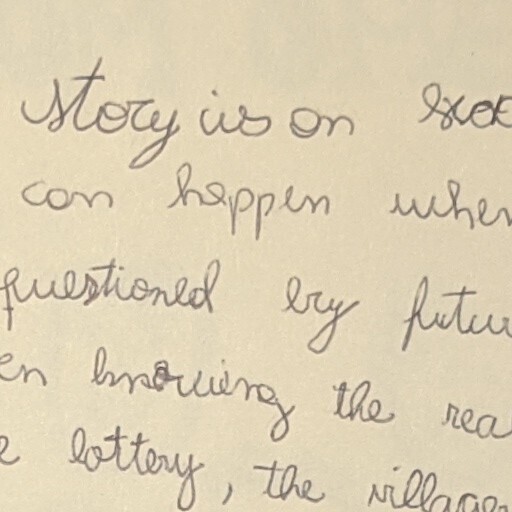 story is on
can happen when
questioned by futu
en knowing the rea
e lottery, the village